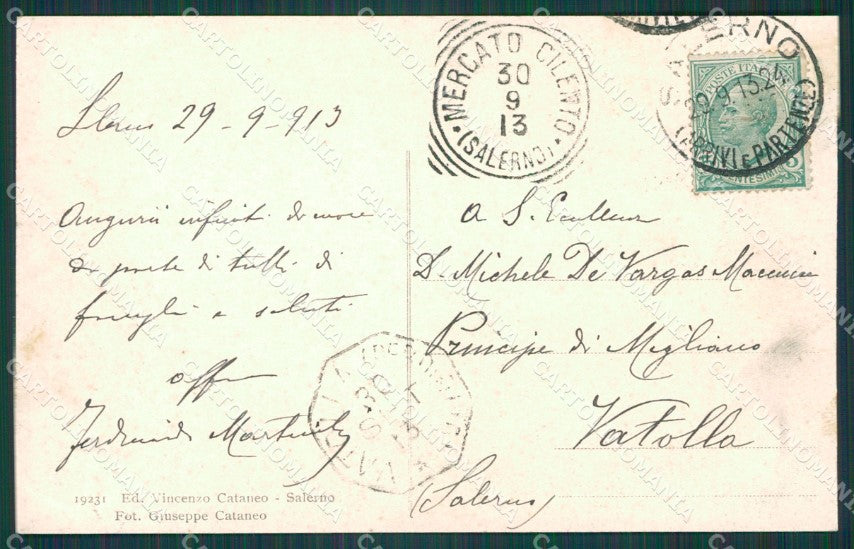 Salerno 29-9-913
Auguri infiniti di cuore
da parte di tutti di
famiglia e saluti
aff
Ferdinando
19231 Ed. Vincenzo Cataneo - Salerno
Fot. Giuseppe Cataneo
MERCATO CILENTO
30
9
13
(SALERNO)
SALERNO
29.9.13.
(ARRIVI E PARTENZE)
POSTE ITALIANE
CENTESIMI
A S. Eccellenza
D. Michele De Vargas Macciucca
Principe di Migliano
Vatolla
(Salerno)
CARTOLINOMANIA